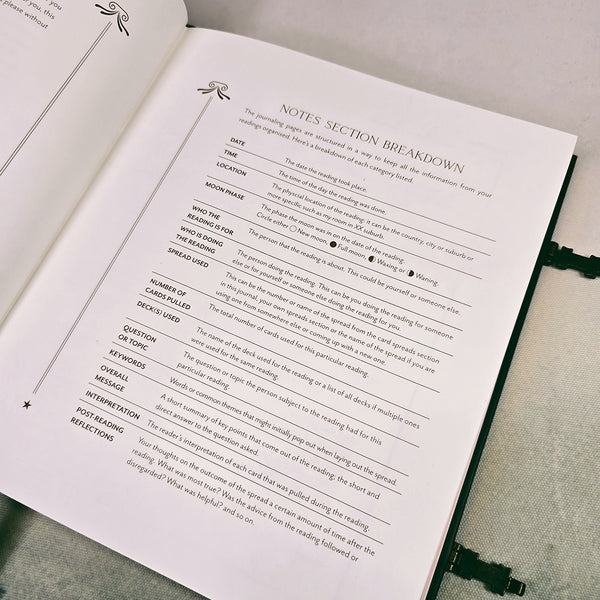 you
you, this
please without
NOTES SECTION BREAKDOWN
The journaling pages are structured in a way to keep all the information from your
readings organised. Here's a breakdown of each category listed.
DATE
The date the reading took place.
TIME
The time of the day the reading was done.
LOCATION
The physcial location of the reading: it can be the country, city or suburb or
more specific such as my room in XX suburb.
MOON PHASE
The phase the moon was in on the date of the reading.
Circle either New moon, Full moon, Waxing or Waning.
WHO THE
READING IS FOR
The person that the reading is about. This could be yourself or someone else.
WHO IS DOING
THE READING
The person doing the reading. This can be you doing the reading for someone
else or for yourself or someone else doing the reading for you.
SPREAD USED
This can be the number or name of the spread from the card spreads section
in this journal, your own spreads section or the name of the spread if you are
using one from somewhere else or coming up with a new one.
NUMBER OF
CARDS PULLED
The total number of cards used for this particular reading.
DECK(S) USED
The name of the deck used for the reading or a list of all decks if multiple ones
were used for the same reading.
QUESTION
OR TOPIC
The question or topic the person subject to the reading had for this
particular reading.
KEYWORDS
Words or common themes that might initially pop out when laying out the spread.
OVERALL
MESSAGE
A short summary of key points that come out of the reading, the short and
direct answer to the question asked.
INTERPRETATION
The reader's interpretation of each card that was pulled during the reading.
POST-READING
REFLECTIONS
Your thoughts on the outcome of the spread a certain amount of time after the
reading. What was most true? Was the advice from the reading followed or
disregarded? What was helpful? and so on.